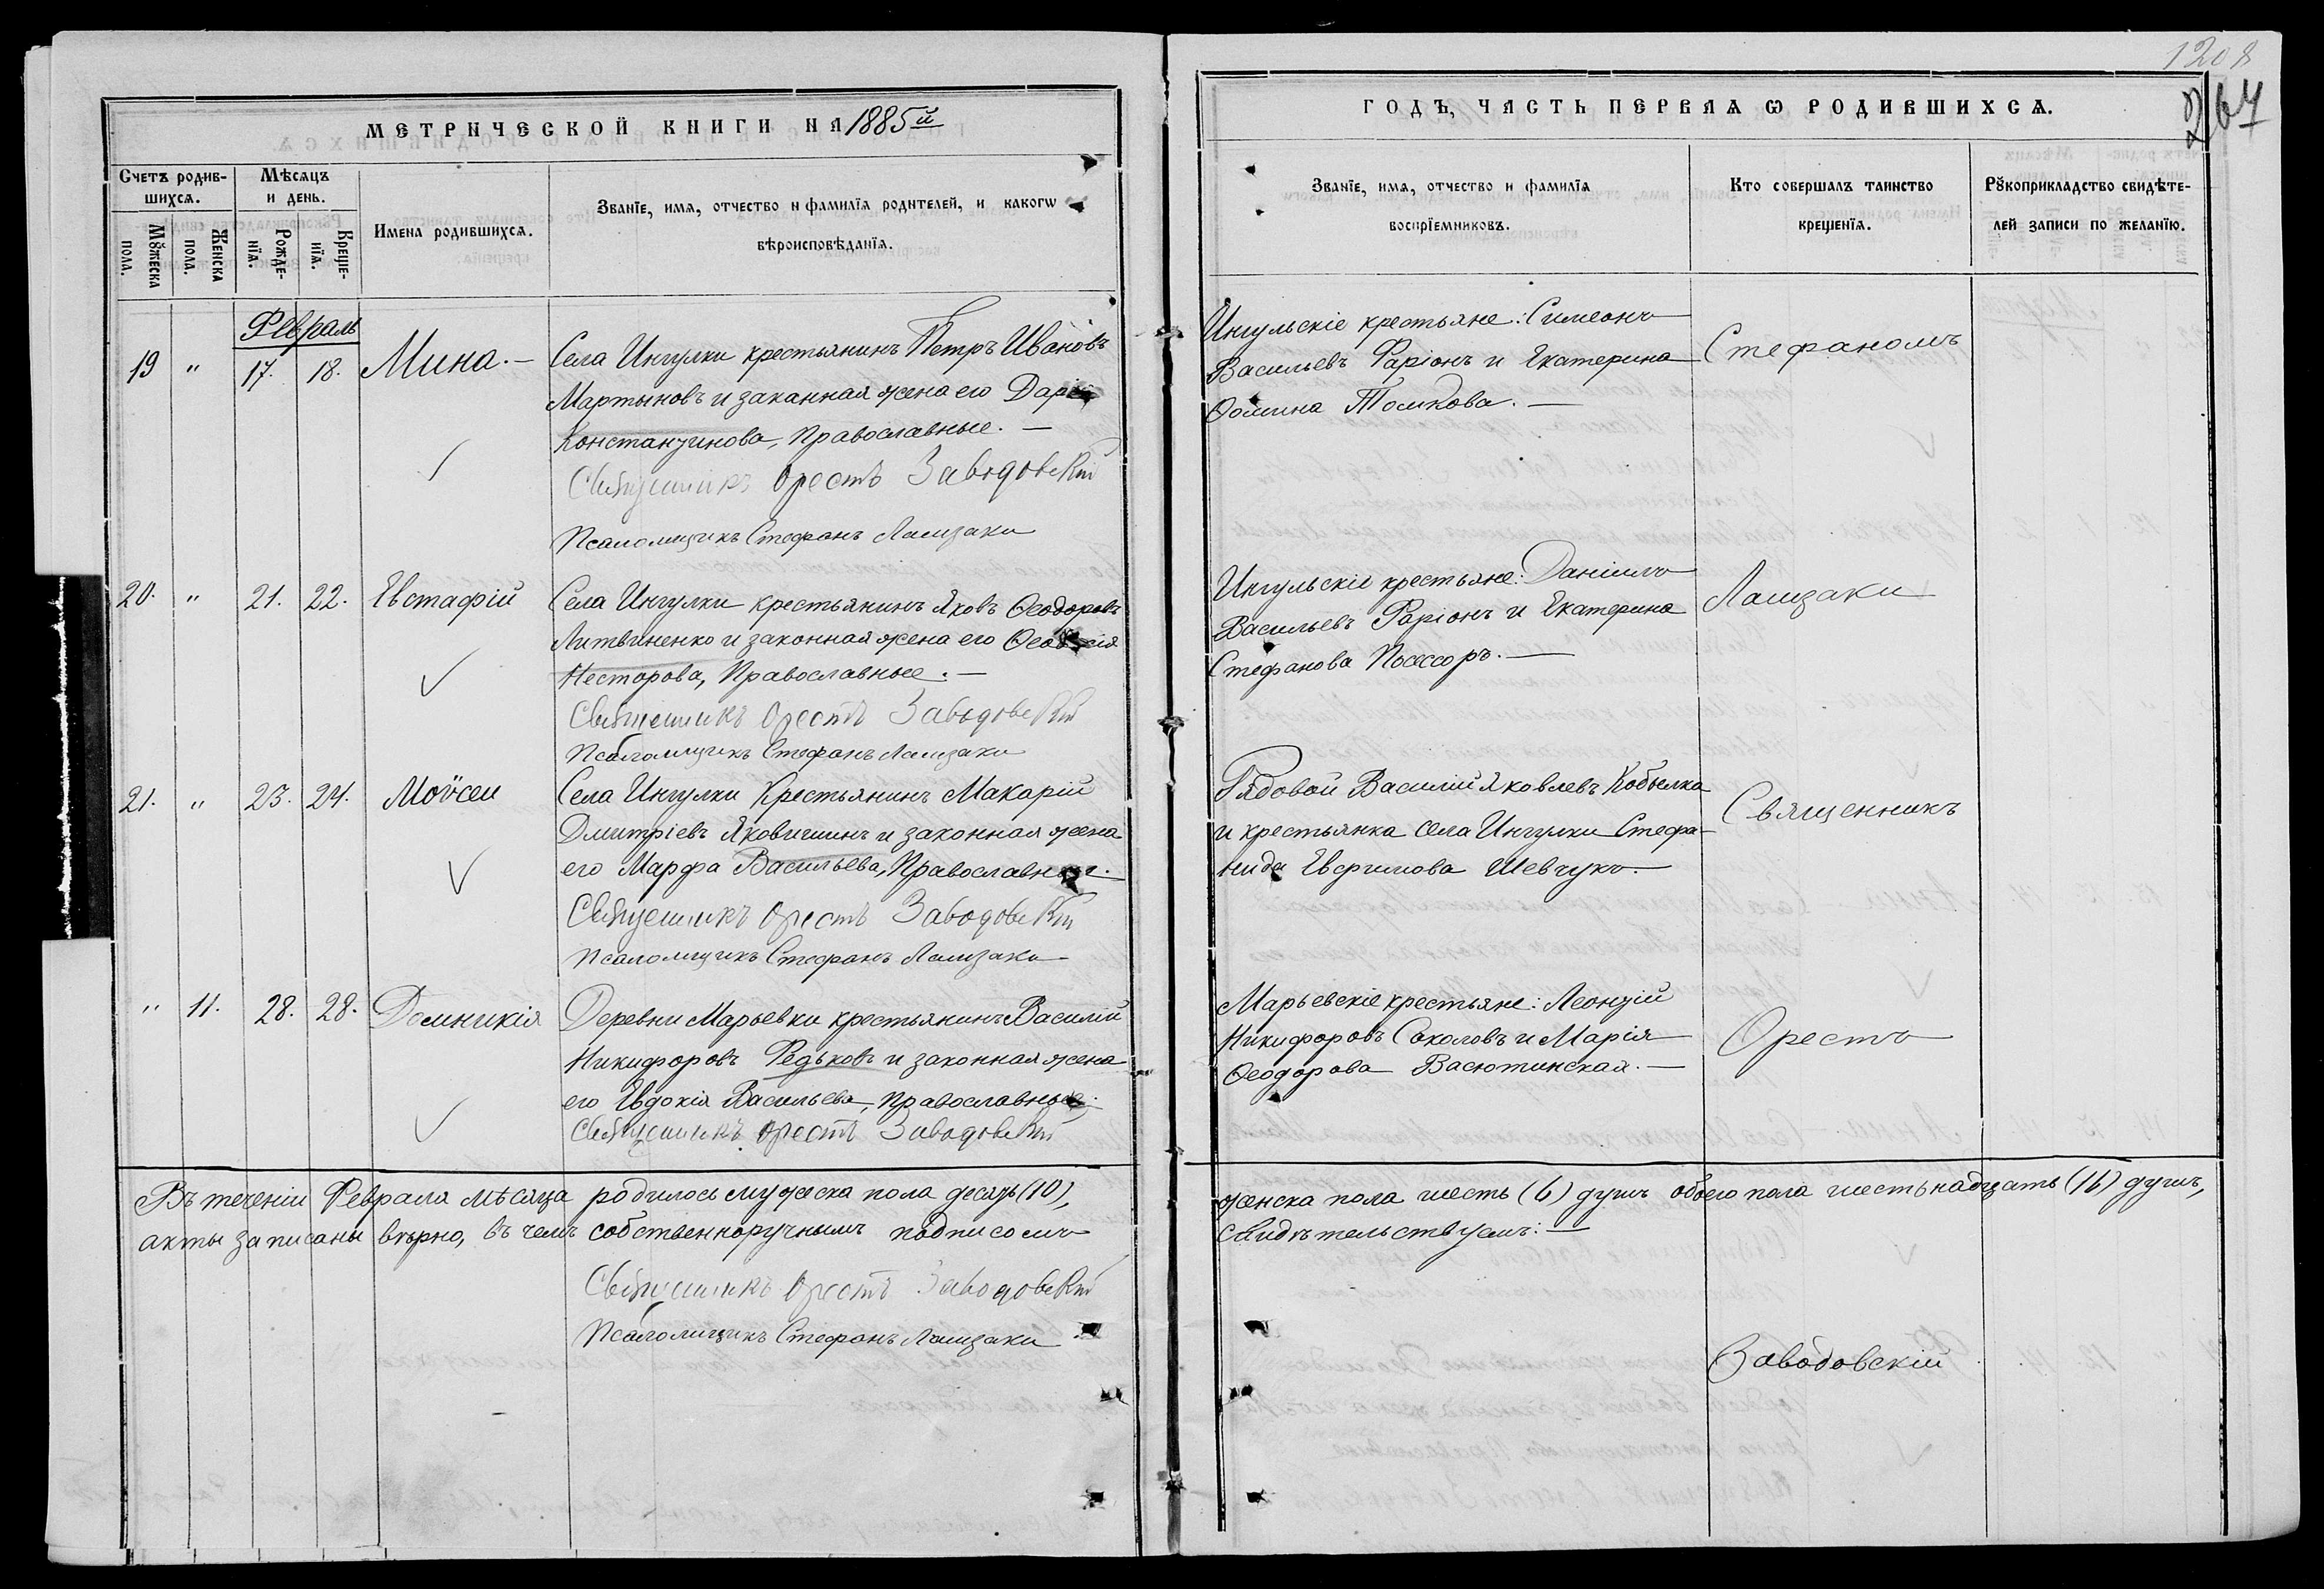 1208
267
МЕТРИЧЕСКОЙ КНИГИ НА 1885й
ГОДЪ, ЧАСТЬ ПЕРВАЯ Ѡ РОДИВШИХСѦ.
Счетъ родив-
шихсѧ.
Мѣсѧцъ
и день.
Мꙋжеска
пола.
Женска
пола.
Рожде-
нїѧ.
Креще-
нїѧ.
Имена родившихсѧ.
Званїе, имѧ, отчество и фамилїѧ родителей, и какогѡ
вѣроисповѣданїѧ.
Званїе, имѧ, отчество и фамилїѧ
воспрїемниковъ.
Кто совершалъ таинство
крещенїѧ.
Рꙋкоприкладство свидѣте-
лей записи по желанїю.
Февраль
19 " 17. 18. Мина. —
Села Ингулки крестьянинъ Петръ Ивановъ
Мартыновъ и законная жена его Дарія
Константинова, Православные. —
Священникъ Орестъ Заводовскій
Псаломщикъ Стефанъ Лащзаки
Ингульскіе крестьяне: Симеонъ
Васильевъ Фаріонъ и Екатерина
Ѳомина Томкова. —
Стефаномъ
20. " 21. 22. Евстафій
Села Ингулки крестьянинъ Яковъ Ѳеодоровъ
Литвиненко и законная жена его Ѳеодосія
Несторова, Православные. —
Священникъ Орестъ Заводовскій
Псаломщикъ Стефанъ Лащзаки
Ингульскіе крестьяне: Даніилъ
Васильевъ Фаріонъ и Екатерина
Стефанова Посессоръ. —
Лащзаки
21. " 23. 24. Моѵсей
Села Ингулки Крестьянинъ Макарій
Дмитріевъ Яковишинъ и законная жена
его Марфа Васильева, Православные.
Священникъ Орестъ Заводовскій
Псаломщикъ Стефанъ Лащзаки
Рядовой Василій Яковлевъ Кобылка
и крестьянка села Ингулки Стефа-
нида Евфимова Шевчукъ. —
Священникъ
" 11. 28. 28. Домникія
Деревни Марьевки крестьянинъ Василій
Никифоровъ Редьковъ и законная жена
его Евдокія Васильева, Православные.
Священникъ Орестъ Заводовскій
Марьевскіе крестьяне: Леонтій
Никифоровъ Соколовъ и Марія
Ѳеодорова Васютинская. —
Орестъ
Въ теченіи Февраля мѣсяца родилось мужеска пола десять (10),
женска пола шесть (6) душъ обоего пола шестьнадцать (16) душъ,
акты записаны вѣрно, въ чемъ собственноручнымъ подписомъ
свидѣтельствуемъ: —
Священникъ Орестъ Заводовскій
Псаломщикъ Стефанъ Лащзаки
Заводовскій